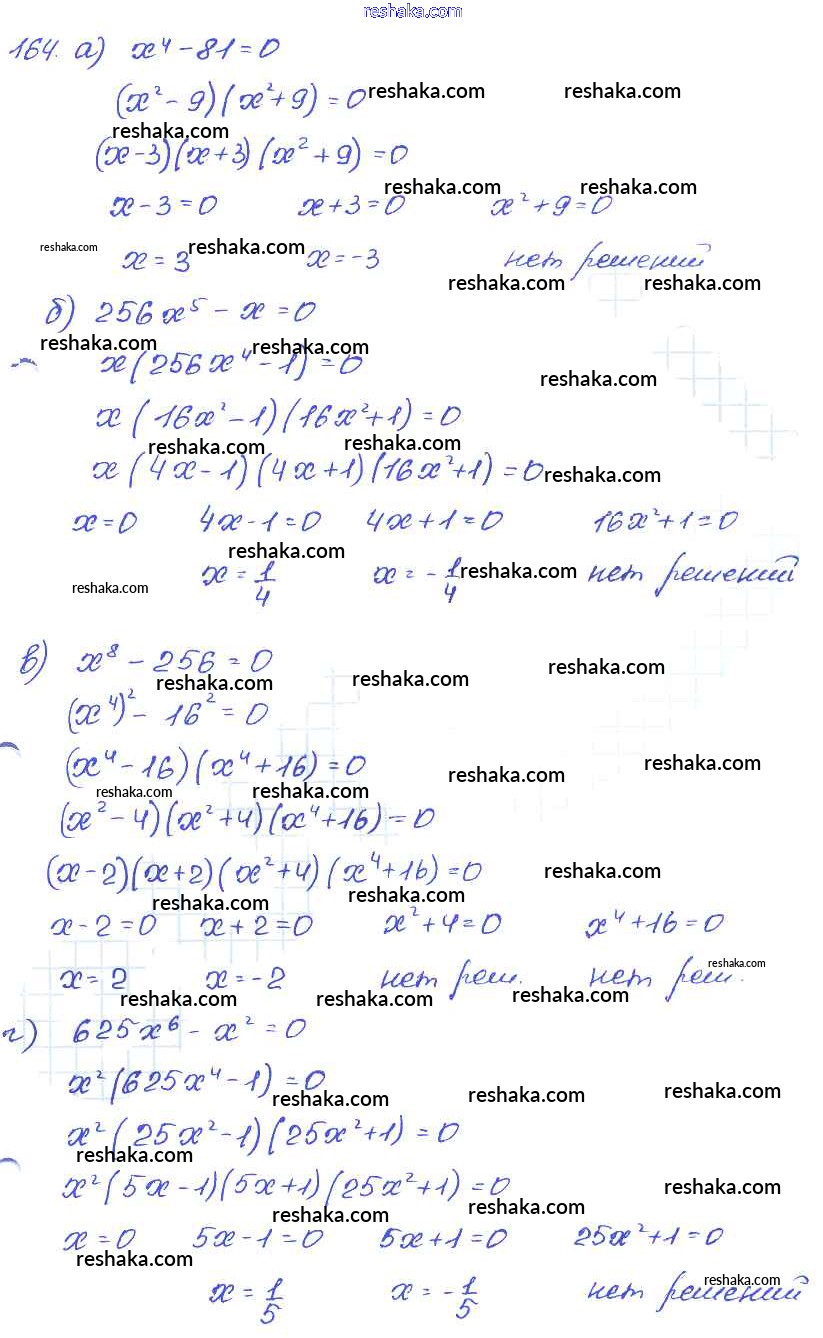 reshaka.com
164. а) x⁴ - 81 = 0
(x² - 9)(x² + 9) = 0 reshaka.com reshaka.com
reshaka.com
(x - 3)(x + 3)(x² + 9) = 0
reshaka.com reshaka.com
x - 3 = 0 x + 3 = 0 x² + 9 = 0
reshaka.com reshaka.com
x = 3 x = -3 нет решений
reshaka.com reshaka.com
б) 256x⁵ - x = 0
reshaka.com reshaka.com
x(256x⁴ - 1) = 0
reshaka.com
x(16x² - 1)(16x² + 1) = 0
reshaka.com reshaka.com
x(4x - 1)(4x + 1)(16x² + 1) = 0 reshaka.com
x = 0 4x - 1 = 0 4x + 1 = 0 16x² + 1 = 0
reshaka.com
x = 1/4 x = -1/4 reshaka.com нет решений
reshaka.com
в) x⁸ - 256 = 0 reshaka.com
reshaka.com reshaka.com
(x⁴)² - 16² = 0
(x⁴ - 16)(x⁴ + 16) = 0 reshaka.com reshaka.com
reshaka.com reshaka.com
(x² - 4)(x² + 4)(x⁴ + 16) = 0
(x - 2)(x + 2)(x² + 4)(x⁴ + 16) = 0 reshaka.com
reshaka.com reshaka.com
x - 2 = 0 x + 2 = 0 x² + 4 = 0 x⁴ + 16 = 0
reshaka.com
x = 2 x = -2 нет реш. нет реш.
reshaka.com reshaka.com reshaka.com
г) 625x⁶ - x² = 0
x²(625x⁴ - 1) = 0
reshaka.com reshaka.com reshaka.com
x²(25x² - 1)(25x² + 1) = 0
reshaka.com
x²(5x - 1)(5x + 1)(25x² + 1) = 0 reshaka.com
reshaka.com reshaka.com
x = 0 5x - 1 = 0 5x + 1 = 0 25x² + 1 = 0
reshaka.com
reshaka.com
x = 1/5 x = -1/5 нет решений